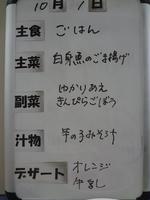 10月1日
主食 ごはん
主菜 白身魚のごま揚げ
副菜 ゆかりあえ
きんぴらごぼう
汁物 竹の子みそ汁
デザート オレンジ
牛乳